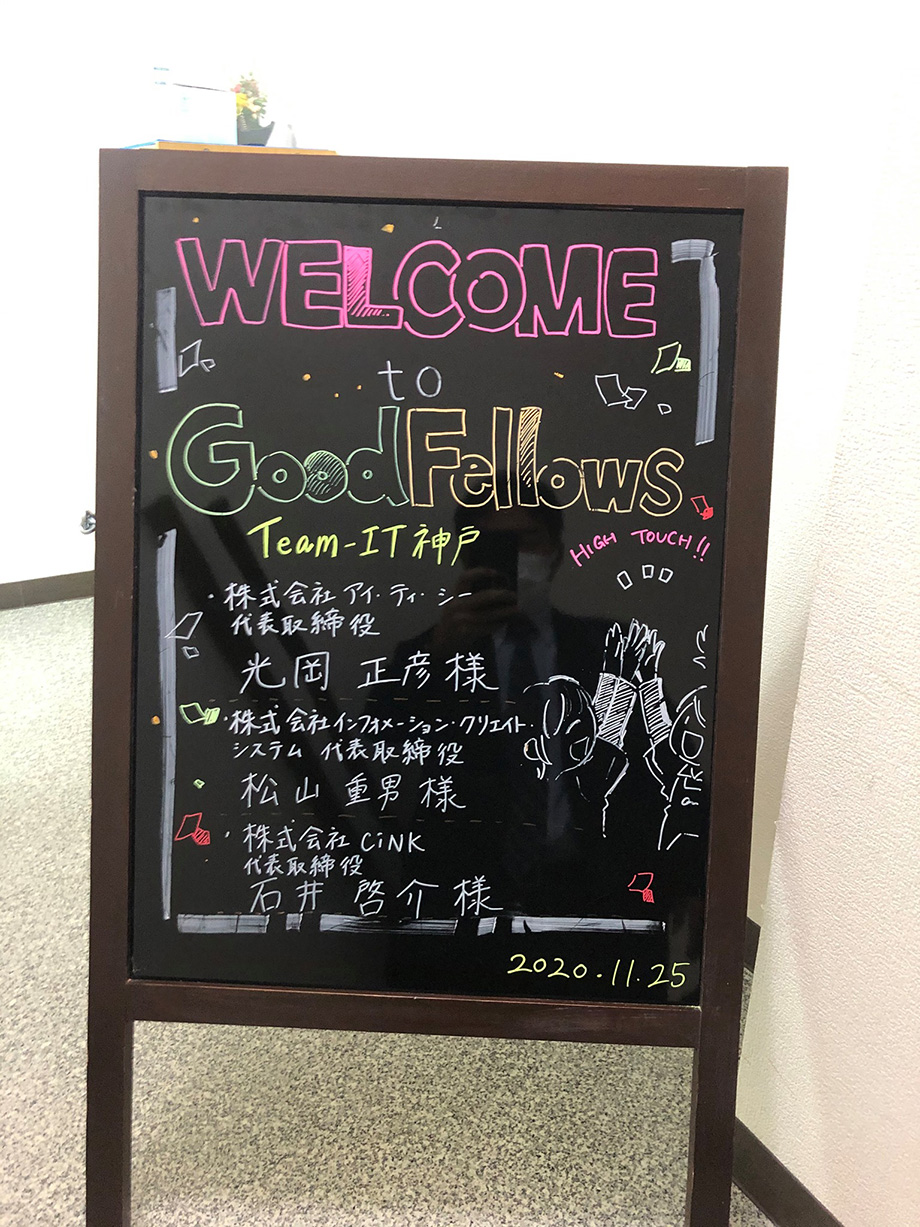 WELCOME
to
GoodFellows
Team-IT神戸
HIGH TOUCH!!
・株式会社アイ・ティ・シー
代表取締役
光岡 正彦様
・株式会社インフォメーション・クリエイト・
システム 代表取締役
松山 重男様
・株式会社CiNK
代表取締役
石井 啓介様
2020.11.25